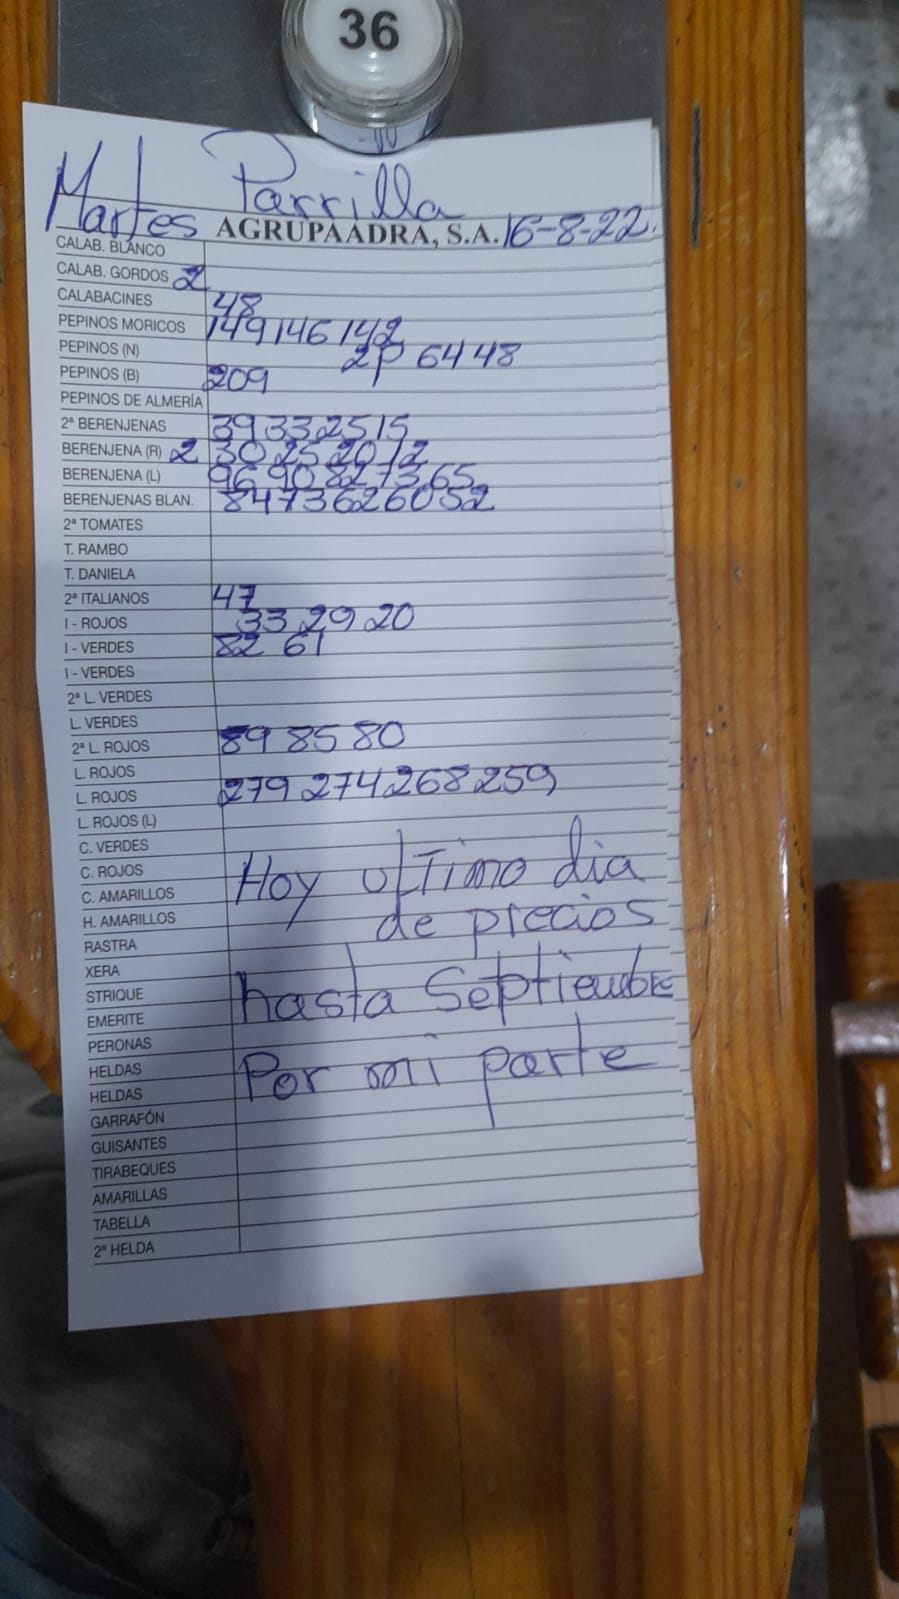 36
Martes Parrilla
AGRUPAADRA, S.A. 16-8-22.
CALAB. BLANCO
CALAB. GORDOS 2
CALABACINES 48
PEPINOS MORICOS 149 146 142
PEPINOS (N) 2P 64 48
PEPINOS (B) 209
PEPINOS DE ALMERÍA
2ª BERENJENAS 39 33 25 15
BERENJENA (R) 2 30 25 20 12
BERENJENA (L) 96 90 82 73 65
BERENJENAS BLAN. 84 73 62 60 52
2ª TOMATES
T. RAMBO
T. DANIELA
2ª ITALIANOS 47
I - ROJOS 33 29 20
I - VERDES 82 61
I - VERDES
2ª L. VERDES
L. VERDES
2ª L. ROJOS 89 85 80
L. ROJOS
L. ROJOS 279 274 268 259
L. ROJOS (L)
C. VERDES
C. ROJOS Hoy ultimo dia
C. AMARILLOS
H. AMARILLOS de precios
RASTRA
XERA
STRIQUE hasta Septiembre
EMERITE
PERONAS
HELDAS Por mi parte
HELDAS
GARRAFÓN
GUISANTES
TIRABEQUES
AMARILLAS
TABELLA
2ª HELDA